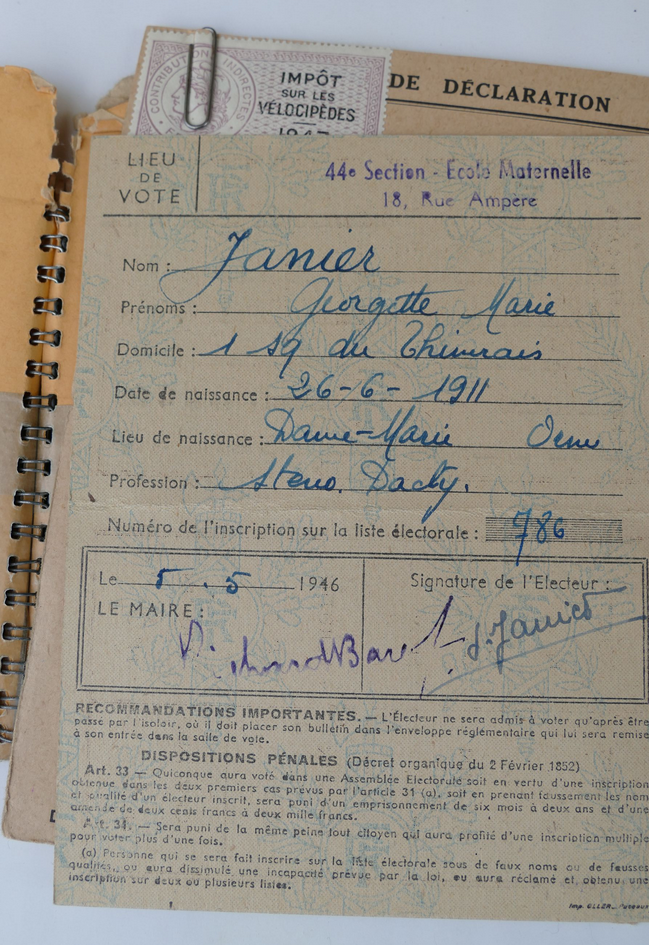 CONTRIBUTIONS INDIRECTES
IMPÔT
SUR LES
VÉLOCIPÈDES
DE DÉCLARATION
LIEU
DE
VOTE
44e Section - Ecole Maternelle
18, Rue Ampère
Nom : Janier
Prénoms : Georgette Marie
Domicile : 1 sq du Thimerais
Date de naissance : 26-6-1911
Lieu de naissance : Dame-Marie Orne
Profession : Steno. Dacty.
Numéro de l'inscription sur la liste électorale : 786
Le 5.5 1946
LE MAIRE :
Signature de l'Electeur :
G. Janier
RECOMMANDATIONS IMPORTANTES. — L'Électeur ne sera admis à voter qu'après être
passé par l'isoloir, où il doit placer son bulletin dans l'enveloppe réglementaire qui lui sera remise
à son entrée dans la salle de vote.
DISPOSITIONS PÉNALES (Décret organique du 2 Février 1852)
Art. 33 — Quiconque aura voté dans une Assemblée Electorale soit en vertu d'une inscription
obtenue dans les deux premiers cas prévus par l'article 31 (a), soit en prenant faussement les nom
et qualité d'un électeur inscrit, sera puni d'un emprisonnement de six mois à deux ans et d'une
amende de deux cents francs à deux mille francs.
Art. 34. — Sera puni de la même peine tout citoyen qui aura profité d'une inscription multiple
pour voter plus d'une fois.
(a) Personne qui se sera fait inscrire sur la liste électorale sous de faux noms ou de fausses
qualités, ou aura dissimulé une incapacité prévue par la loi, ou aura réclamé et obtenu une
inscription sur deux ou plusieurs listes.